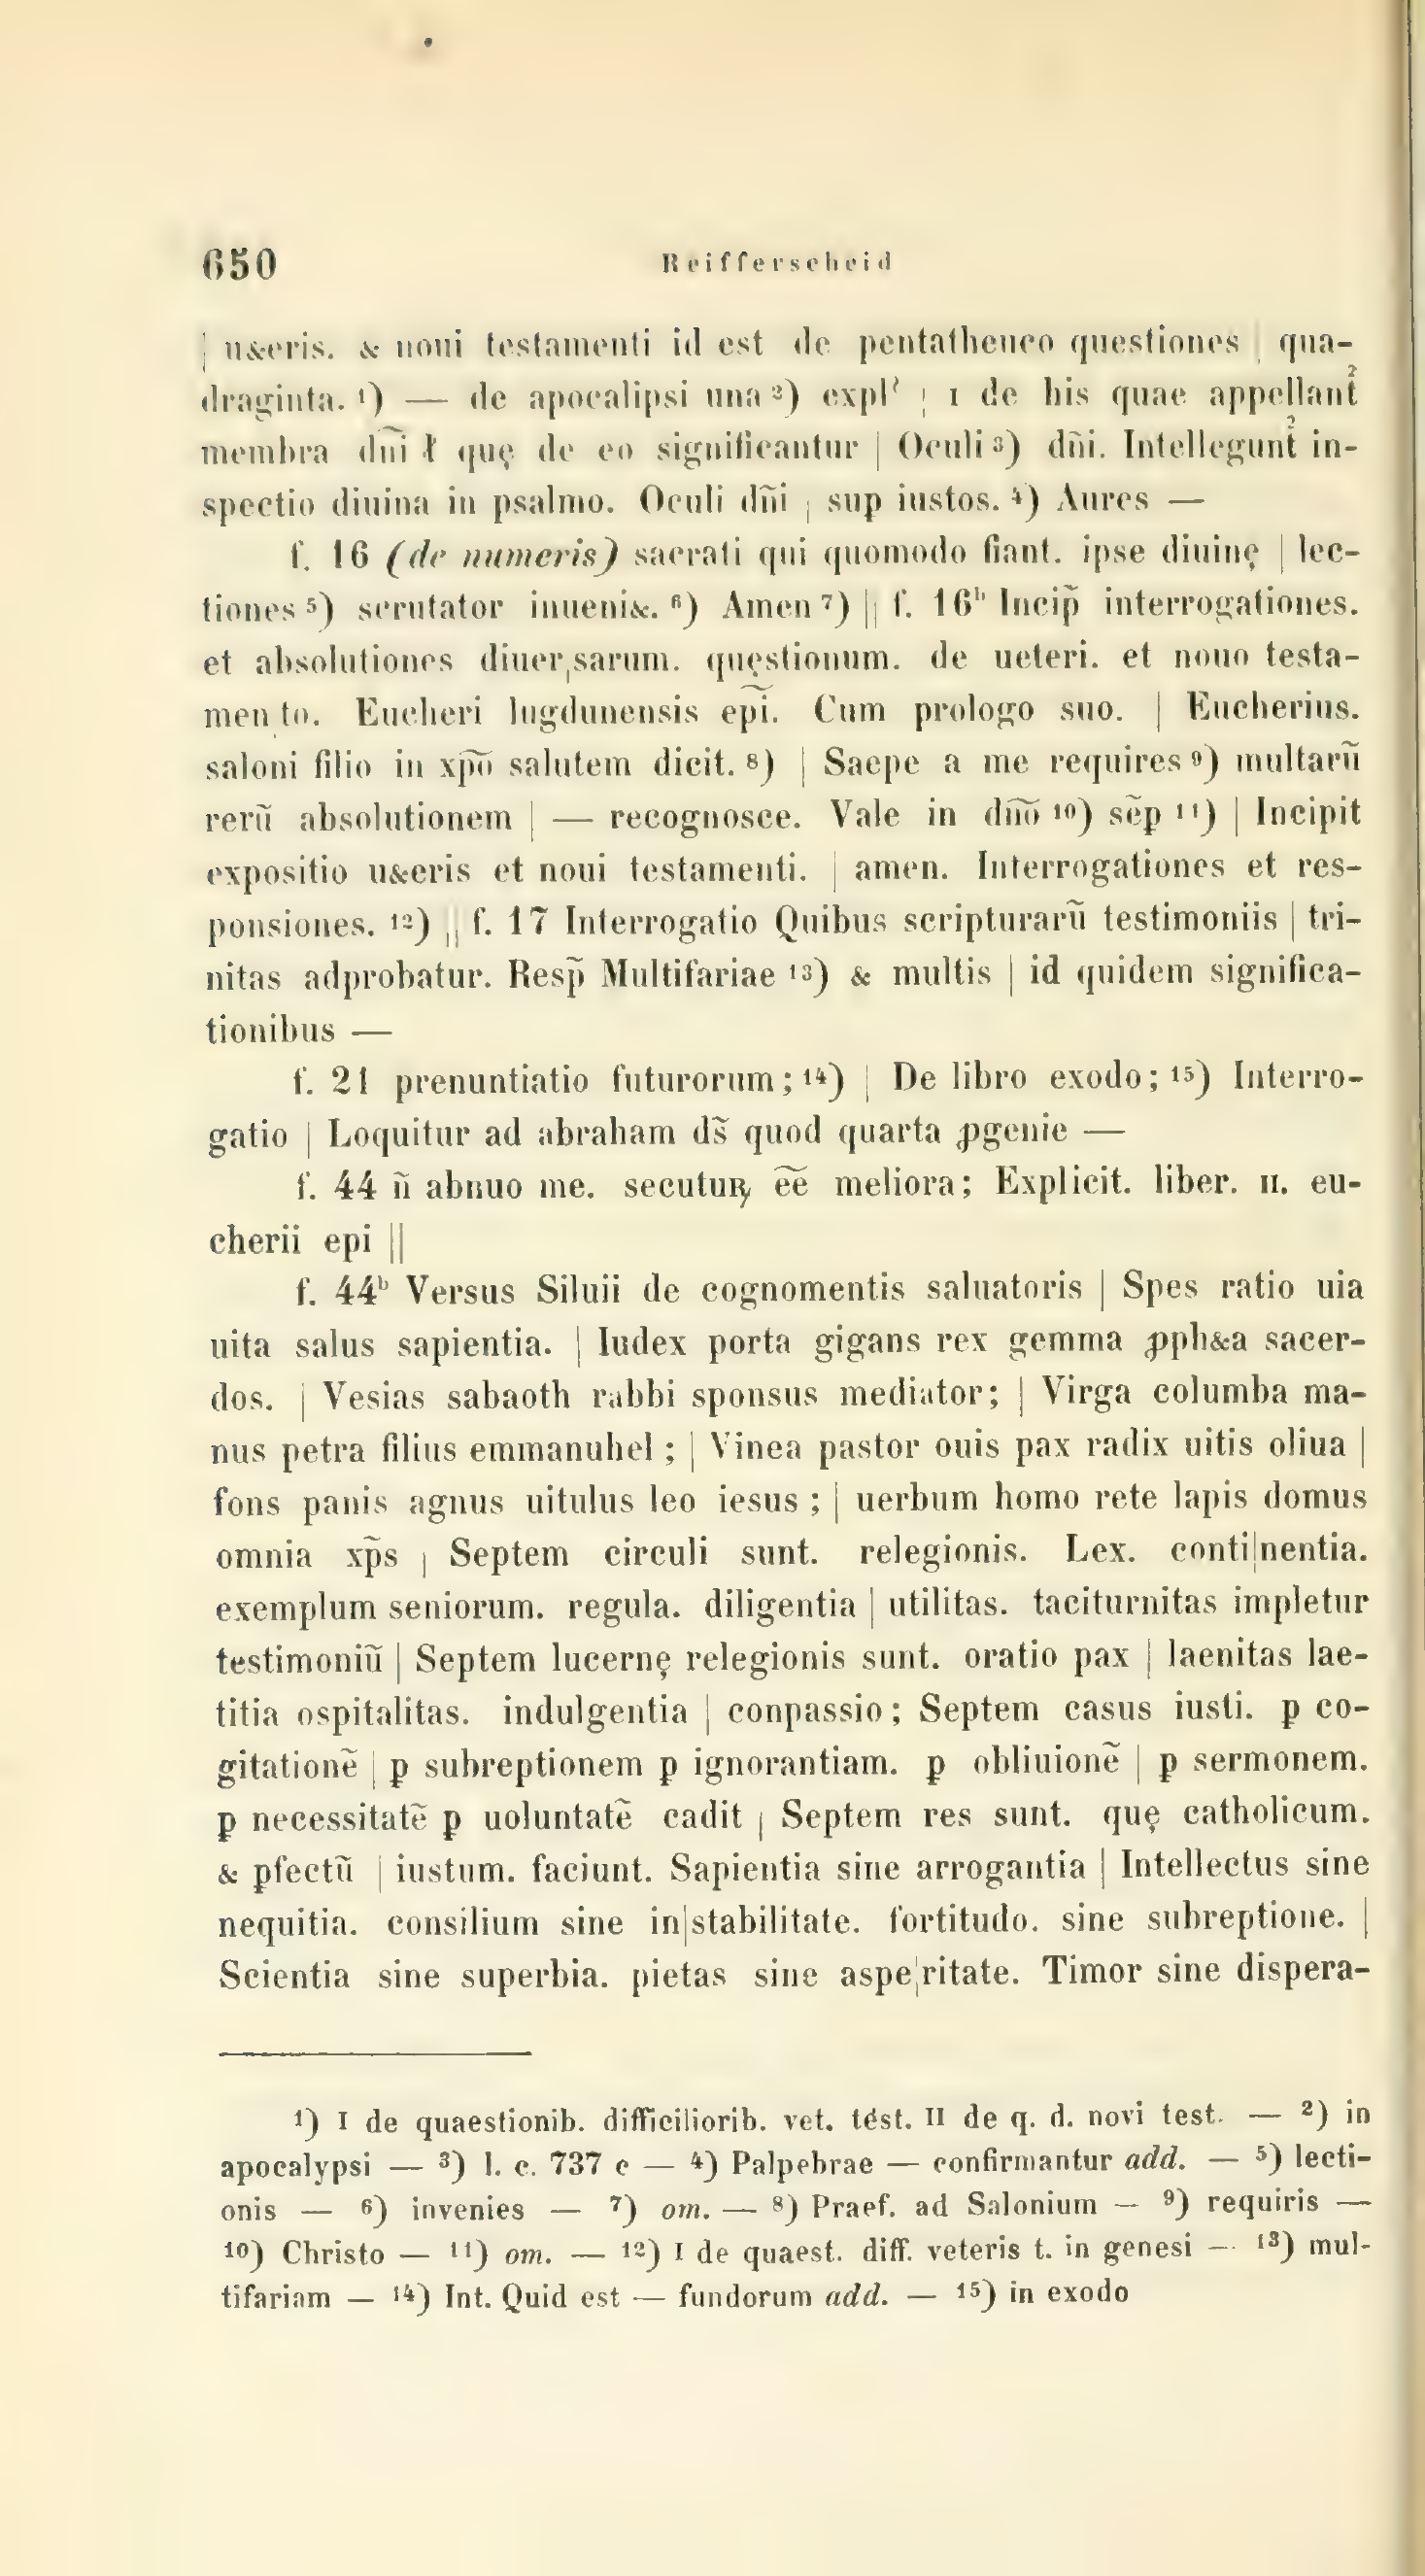 650 Reifferscheid
| u&eris. & noui testamenti id est de pentatheuco questiones | qua-
draginta. ¹) — de apocalipsi una ²) expl⸍ | ɪ de his quae appellant̾
membra dñi ł quę de eo significantur | Oculi ³) dñi. Intellegunt̾ in-
spectio diuina in psalmo. Oculi dñi | sup iustos. ⁴) Aures —
f. 16 (de numeris) sacrati qui quomodo fiant. ipse diuinę | lec-
tiones ⁵) scrutator inueni&. ⁶) Amen ⁷) || f. 16ᵇ Incip̃ interrogationes.
et absolutiones diuer|sarum. quęstionum. de ueteri. et nouo testa-
men|to. Eucheri lugdunensis epĩ. Cum prologo suo. | Eucherius.
saloni filio in xp̃õ salutem dicit. ⁸) | Saepe a me requires ⁹) multarũ
rerũ absolutionem | — recognosce. Vale in dñõ ¹⁰) sẽp ¹¹) | Incipit
expositio u&eris et noui testamenti. | amen. Interrogationes et res-
ponsiones. ¹²) || f. 17 Interrogatio Quibus scripturarũ testimoniis | tri-
nitas adprobatur. Resp̃ Multifariae ¹³) & multis | id quidem significa-
tionibus —
f. 21 prenuntiatio futurorum; ¹⁴) | De libro exodo; ¹⁵) Interro-
gatio | Loquitur ad abraham ds̃ quod quarta ꝓgenie —
f. 44 ñ abnuo me. secutuꝶ ẽẽ meliora; Explicit. liber. ɪɪ. eu-
cherii epi ||
f. 44ᵇ Versus Siluii de cognomentis saluatoris | Spes ratio uia
uita salus sapientia. | Iudex porta gigans rex gemma ꝓph&a sacer-
dos. | Vesias sabaoth rabbi sponsus mediator; | Virga columba ma-
nus petra filius emmanuhel; | Vinea pastor ouis pax radix uitis oliua |
fons panis agnus uitulus leo iesus; | uerbum homo rete lapis domus
omnia xp̃s | Septem circuli sunt. relegionis. Lex. conti|nentia.
exemplum seniorum. regula. diligentia | utilitas. taciturnitas impletur
testimoniũ | Septem lucernę relegionis sunt. oratio pax | laenitas lae-
titia ospitalitas. indulgentia | conpassio; Septem casus iusti. ꝑ co-
gitationẽ | ꝑ subreptionem ꝑ ignorantiam. ꝑ obliuionẽ | ꝑ sermonem.
ꝑ necessitatẽ ꝑ uoluntatẽ cadit | Septem res sunt. quę catholicum.
& ꝑfectũ | iustum. faciunt. Sapientia sine arrogantia | Intellectus sine
nequitia. consilium sine in|stabilitate. fortitudo. sine subreptione. |
Scientia sine superbia. pietas sine aspe|ritate. Timor sine dispera-
¹) I de quaestionib. difficiliorib. vet. tést. II de q. d. novi test. — ²) in
apocalypsi — ³) l. c. 737 c — ⁴) Palpebrae — confirmantur add. — ⁵) lecti-
onis — ⁶) invenies — ⁷) om. — ⁸) Praef. ad Salonium — ⁹) requiris —
¹⁰) Christo — ¹¹) om. — ¹²) I de quaest. diff. veteris t. in genesi — ¹³) mul-
tifariam — ¹⁴) Int. Quid est — fundorum add. — ¹⁵) in exodo